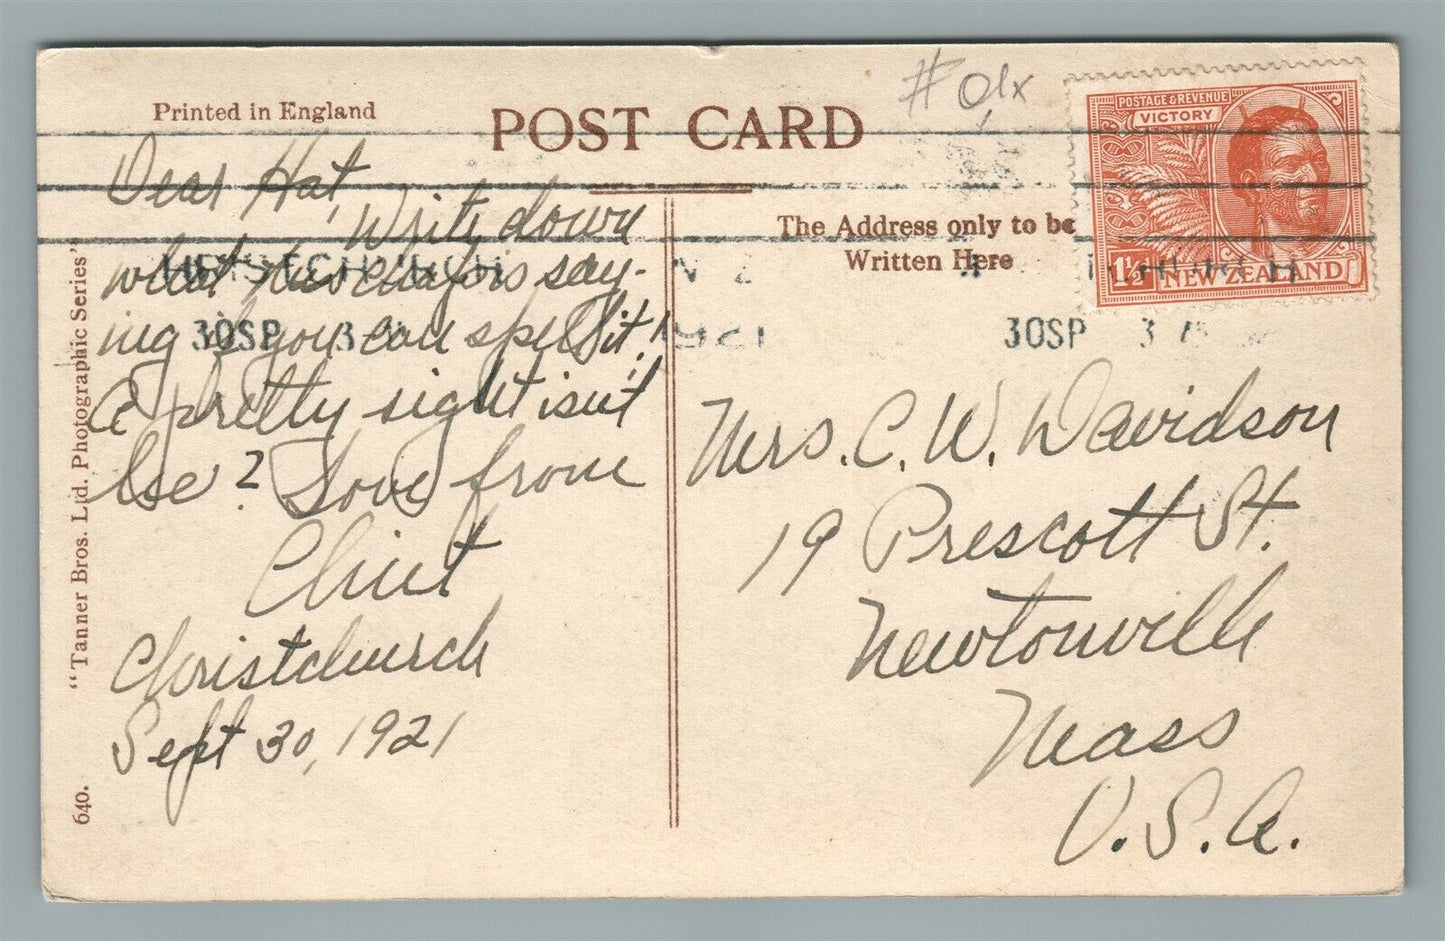 Printed in England
POST CARD
# 01x
POSTAGE & REVENUE
VICTORY
1½d NEW ZEALAND
The Address only to be
Written Here
30SP 3
1921
30SP 3
Dear Hat,
Write down
what this is say-
ing if you can spell it!
A pretty sight isn't
he? Love from
Clint
Christchurch
Sept 30, 1921
Mrs. C. W. Davidson
19 Prescott St.
Newtonville
Mass
U.S.A.
"Tanner Bros. Ltd. Photographic Series"
640.